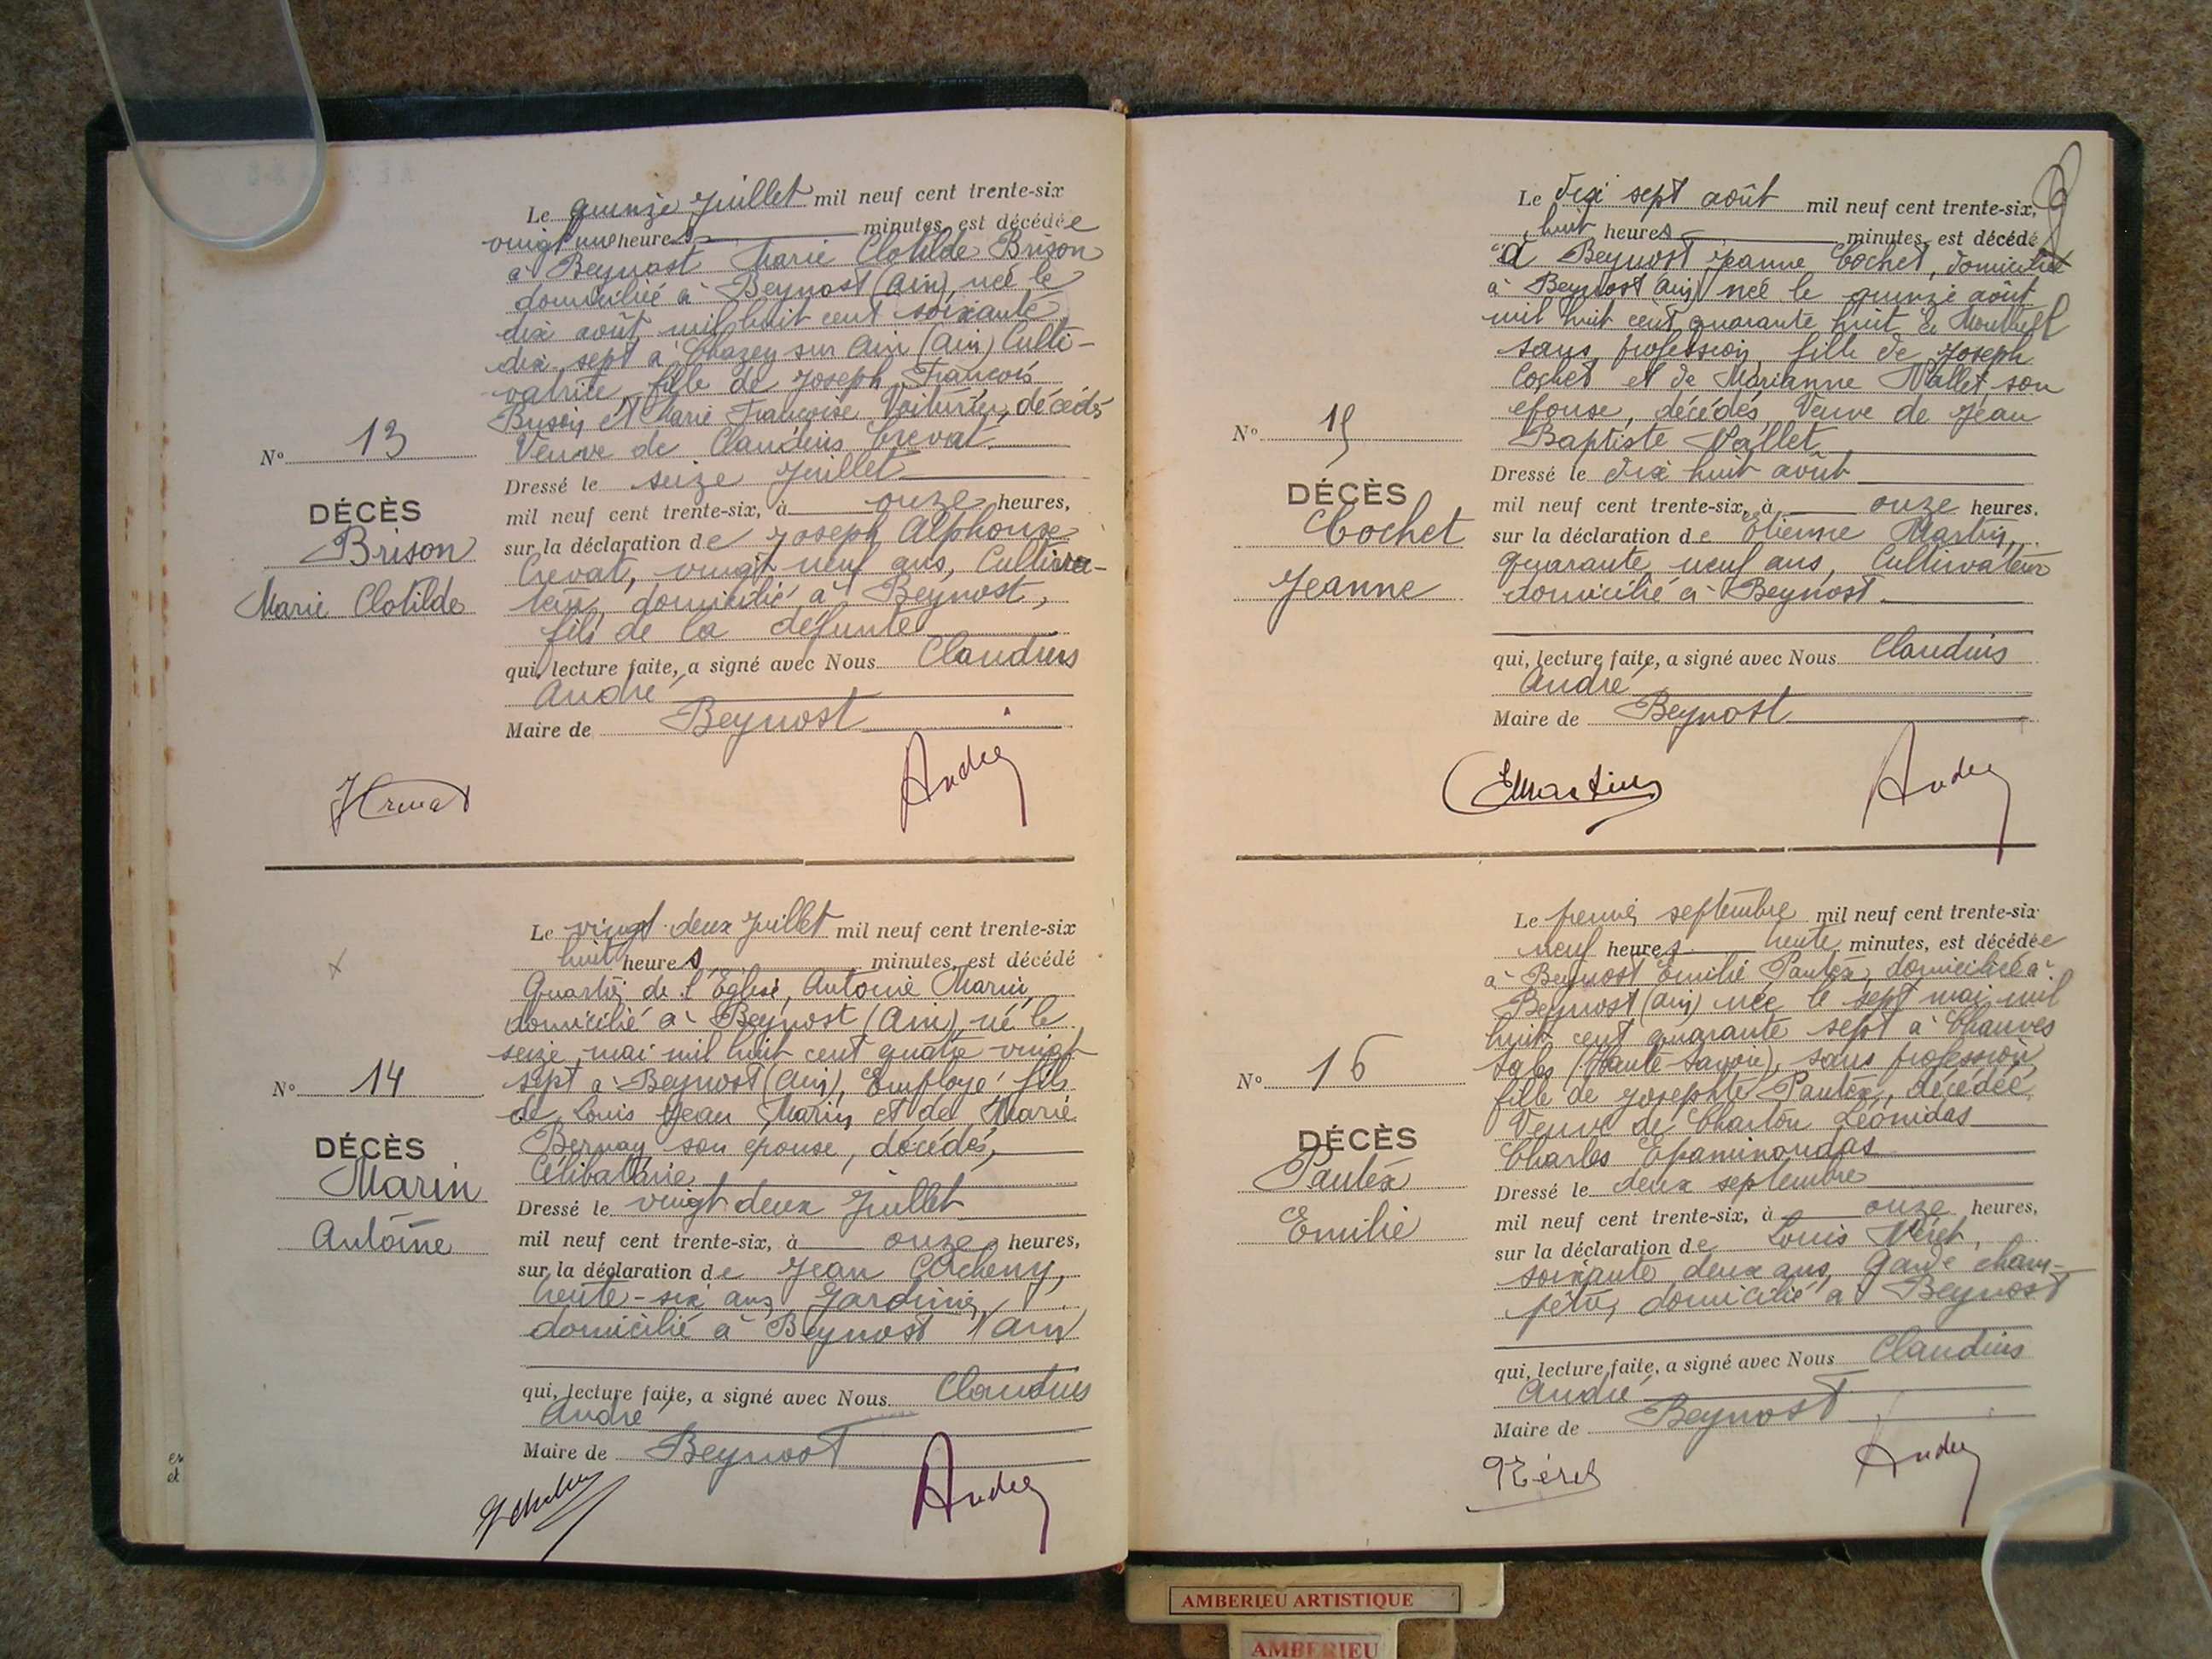 Le quinze Juillet mil neuf cent trente-six
vingt une heures minutes, est décédée
à Beynost Marie Clotilde Brison
domiciliée à Beynost (Ain), née le
dix août mil huit cent soixante
dix sept à Chazey sur Ain (Ain) Culti-
vatrice, fille de Joseph François
Brison et Marie Françoise Voiturier, décédés
Veuve de Claudius Crevat
N° 13
DÉCÈS
Brison
Marie Clotilde
Dressé le seize Juillet
mil neuf cent trente-six, à onze heures,
sur la déclaration de Joseph Alphonse
Crevat, vingt neuf ans, Cultiva-
teur, domicilié à Beynost,
fils de la défunte
qui, lecture faite, a signé avec Nous Claudius
André
Maire de Beynost
André
Le vingt deux Juillet mil neuf cent trente-six
huit heures minutes, est décédé
Quartier de l'Eglise, Antoine Marin,
domicilié à Beynost (Ain), né le
seize mai mil huit cent quatre vingt
sept à Beynost (Ain), Employé, fils
de Louis Jean Marin et de Marie
Bernay son épouse, décédés,
Célibataire
N° 14
DÉCÈS
Marin
Antoine
Dressé le vingt deux Juillet
mil neuf cent trente-six, à onze heures,
sur la déclaration de Jean
trente-six ans, Jardinier,
domicilié à Beynost Ain
qui, lecture faite, a signé avec Nous Claudius
André
Maire de Beynost
André
Le dix sept août mil neuf cent trente-six,
huit heures minutes, est décédé
à Beynost Jeanne Cochet, domiciliée
à Beynost (Ain) née le quinze août
mil huit cent quarante huit à Montluel
sans profession, fille de Joseph
Cochet et de Marianne Vallet, son
épouse, décédés, Veuve de Jean
Baptiste Vallet
N° 15
DÉCÈS
Cochet
Jeanne
Dressé le dix huit août
mil neuf cent trente-six, à onze heures,
sur la déclaration de Etienne Martin,
quarante neuf ans, Cultivateur
domicilié à Beynost
qui, lecture faite, a signé avec Nous Claudius
André
Maire de Beynost
EMartin
André
Le premier septembre mil neuf cent trente-six
neuf heures trente minutes, est décédée
à Beynost Emilie Pautex, domiciliée à
Beynost (Ain) née le sept mai mil
huit cent quarante sept à Chauves
Sales (Haute-Savoie), sans profession,
fille de Josephte Pautex, décédée
Veuve de Charton Léonidas
Charles Epaminondas
N° 16
DÉCÈS
Pautex
Emilie
Dressé le deux septembre
mil neuf cent trente-six, à onze heures,
sur la déclaration de Louis Néret,
soixante deux ans, Garde cham-
pêtre, domicilié à Beynost
qui, lecture faite, a signé avec Nous Claudius
André
Maire de Beynost
Néret
André
AMBERIEU ARTISTIQUE
AMBERIEU